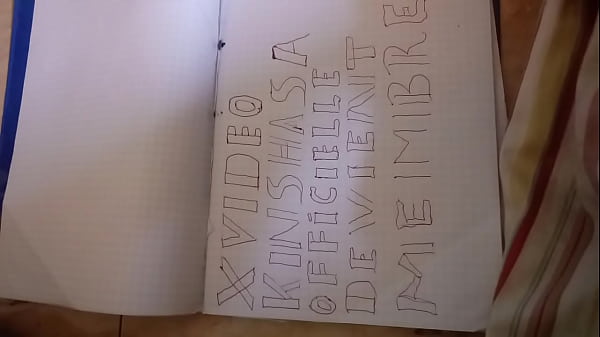 XVIDEO
KINSHASA
OFFICIELLE
DEVIENT
MEIMBRE